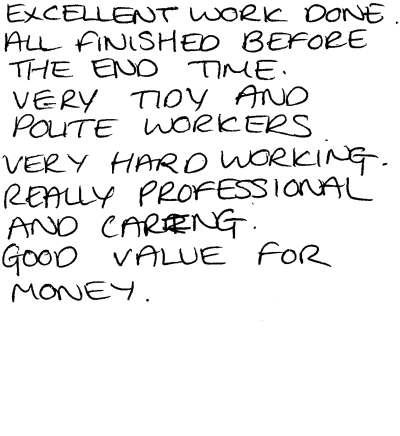 EXCELLENT WORK DONE.
ALL FINISHED BEFORE
THE END TIME.
VERY TIDY AND
POLITE WORKERS.
VERY HARD WORKING.
REALLY PROFESSIONAL
AND CARING.
GOOD VALUE FOR
MONEY.